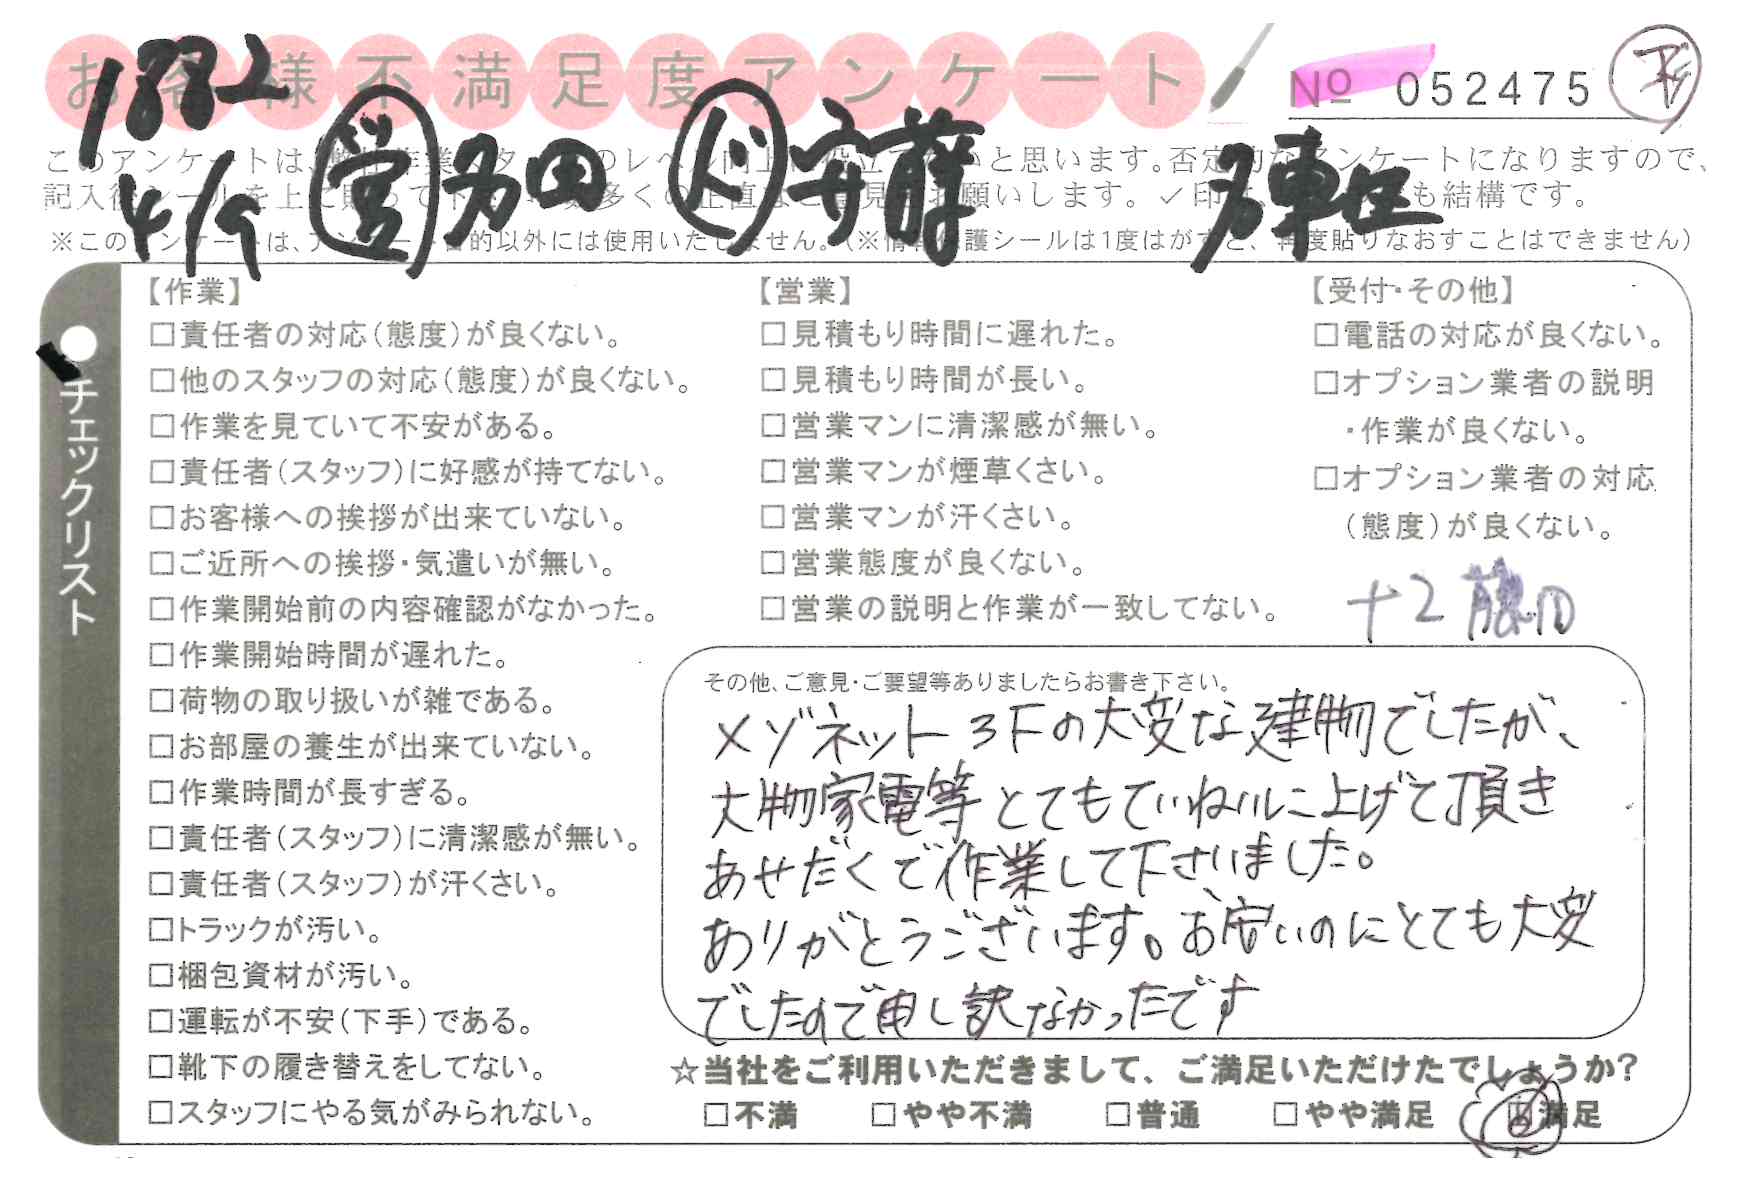 お客様不満足度アンケート
No 052475
1882
4/9 営 多田 ド 安藤
このアンケートは、
と思います。否定的なアンケートになりますので、
記入後シールを上に貼って下
多くの正直なご意見をお願いします。✓印
も結構です。
※このアンケートは、アンケート目的以外には使用いたしません。(※情報保護シールは1度はがすと、再度貼りなおすことはできません)
●チェックリスト
【作業】
□責任者の対応(態度)が良くない。
□他のスタッフの対応(態度)が良くない。
□作業を見ていて不安がある。
□責任者(スタッフ)に好感が持てない。
□お客様への挨拶が出来ていない。
□ご近所への挨拶・気遣いが無い。
□作業開始前の内容確認がなかった。
□作業開始時間が遅れた。
□荷物の取り扱いが雑である。
□お部屋の養生が出来ていない。
□作業時間が長すぎる。
□責任者(スタッフ)に清潔感が無い。
□責任者(スタッフ)が汗くさい。
□トラックが汚い。
□梱包資材が汚い。
□運転が不安(下手)である。
□靴下の履き替えをしてない。
□スタッフにやる気がみられない。
【営業】
□見積もり時間に遅れた。
□見積もり時間が長い。
□営業マンに清潔感が無い。
□営業マンが煙草くさい。
□営業マンが汗くさい。
□営業態度が良くない。
□営業の説明と作業が一致してない。
【受付・その他】
□電話の対応が良くない。
□オプション業者の説明
・作業が良くない。
□オプション業者の対応
(態度)が良くない。
+2
その他、ご意見・ご要望等ありましたらお書き下さい。
メゾネット3Fの大変な建物でしたが、
大物家電等とてもていねいに上げて頂き
あせだくで作業して下さいました。
ありがとうございます。お安いのにとても大変
でしたので申し訳なかったです
☆当社をご利用いただきまして、ご満足いただけたでしょうか?
□不満 □やや不満 □普通 □やや満足 □満足